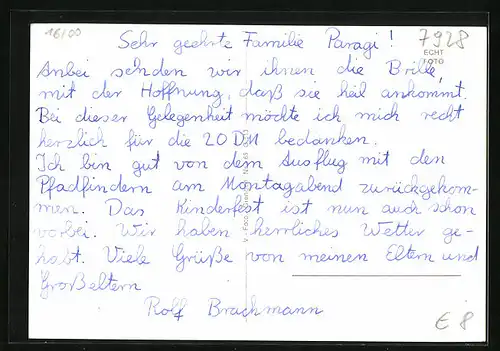 16/00
7928
Sehr geehrte Familie Paragi!
ECHT
FOTO
Anbei senden wir ihnen die Brille,
mit der Hoffnung, daß sie heil ankommt.
Bei dieser Gelegenheit möchte ich mich recht
herzlich für die 20 DM bedanken.
Ich bin gut von dem Ausflug mit den
Pfadfindern am Montagabend zurückgekom-
men. Das Kinderfest ist nun auch schon
vorbei. Wir haben herrliches Wetter ge-
habt. Viele Grüße von meinen Eltern und
Großeltern
Rolf Brachmann
€ 8